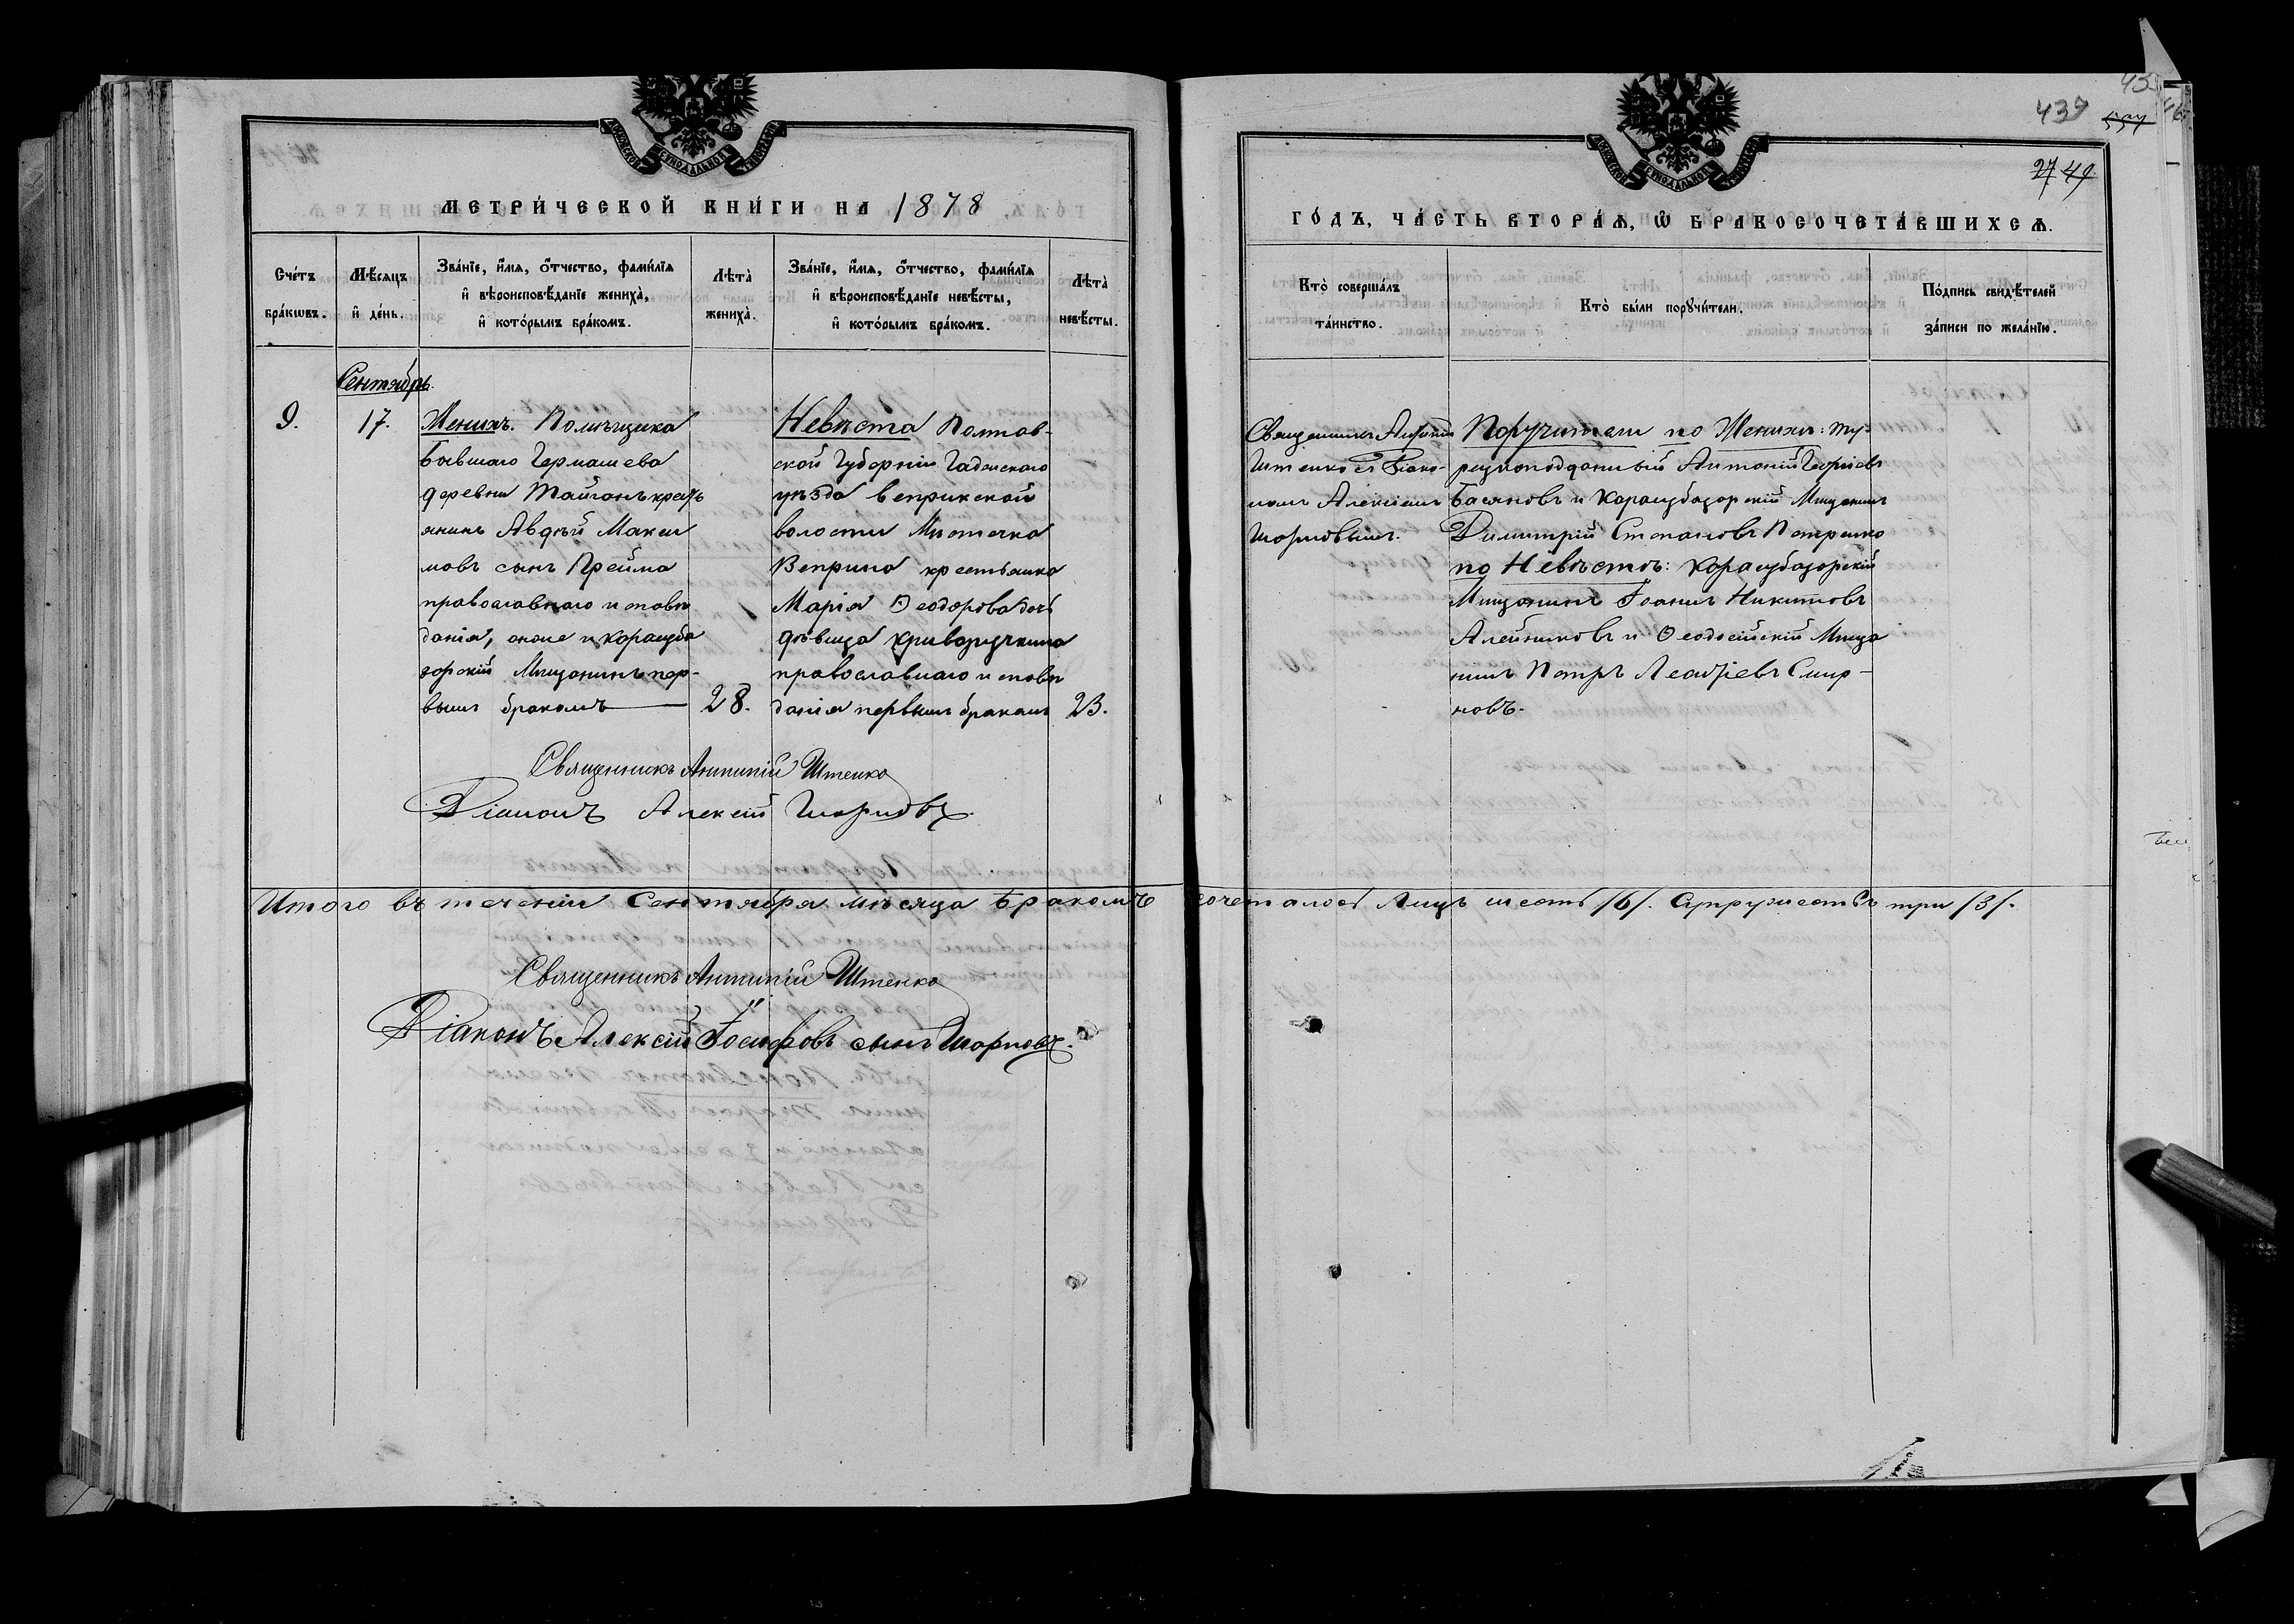 439
27 49.
МЕТРИ́ЧЕСКОЙ КНИ́ГИ НА 1878
ГО́ДЪ, ЧА́СТЬ ВТОРА́Ѧ, Ѽ БРАКОСОЧЕТА́ВШИХСѦ.
Сче́тъ
бра́кѡвъ.
Мѣ́сѧцъ
и҆ де́нь.
Зва́нїе, и҆́мѧ, ѻ҆́тчество, фами́лїѧ
и҆ вѣроисповѣ́данїе жениха̀,
и҆ кото́рымъ бра́комъ.
Лѣ́та̀
жениха̀.
Зва́нїе, и҆́мѧ, ѻ҆́тчество, фами́лїѧ
и҆ вѣроисповѣ́данїе невѣ́сты,
и҆ кото́рымъ бра́комъ.
Лѣ́та̀
невѣ́сты.
Кто̀ соверша́лъ
та́инство.
Кто̀ бы́ли порꙋчи́тели.
По́дпись свидѣ́телей
за́писи по жела́нїю.
Сентябрь.
9.
17.
Женихъ. Помѣщика
бывшаго Гермашева
деревни Тайганъ кресть
янинъ Авдѣй Макси
мовъ сынъ Прейма
православнаго исповѣ
данія, онже и Карасуба
зорскій Мещанинъ пер-
вымъ бракомъ
28.
Невѣста Полтав-
ской Губерніи Гадячскаго
уѣзда Веприкской
волости Мѣстечка
Веприка крестьянка
Марія Ѳеодорова дочь
дѣвица Криворучкина
православнаго исповѣ
данія первымъ бракомъ
23.
Священникъ Антипій
Штенко съ Діако-
номъ Алексіемъ
Шорновымъ.
Поручители по Женихѣ: ту-
рецкоподданный Антоній Георгіевъ
Басяновъ и Карасубазорскій Мещанинъ
Димитрій Степановъ Петренко
по Невѣстѣ: Карасубазорскій
Мещанинъ Іоаннъ Никитовъ
Алейниковъ и Ѳеодосійскій Меща
нинъ Петръ Леонтіевъ Смир-
новъ.
Священникъ Антипій Штенко
Діаконъ Алексій Шорновъ
Итого въ теченіи Сентября мѣсяца бракомъ сочеталось лицъ шесть /6/. Супружествъ три /3/.
Священникъ Антипій Штенко
Діаконъ Алексій Іосифовъ сынъ Шорновъ.